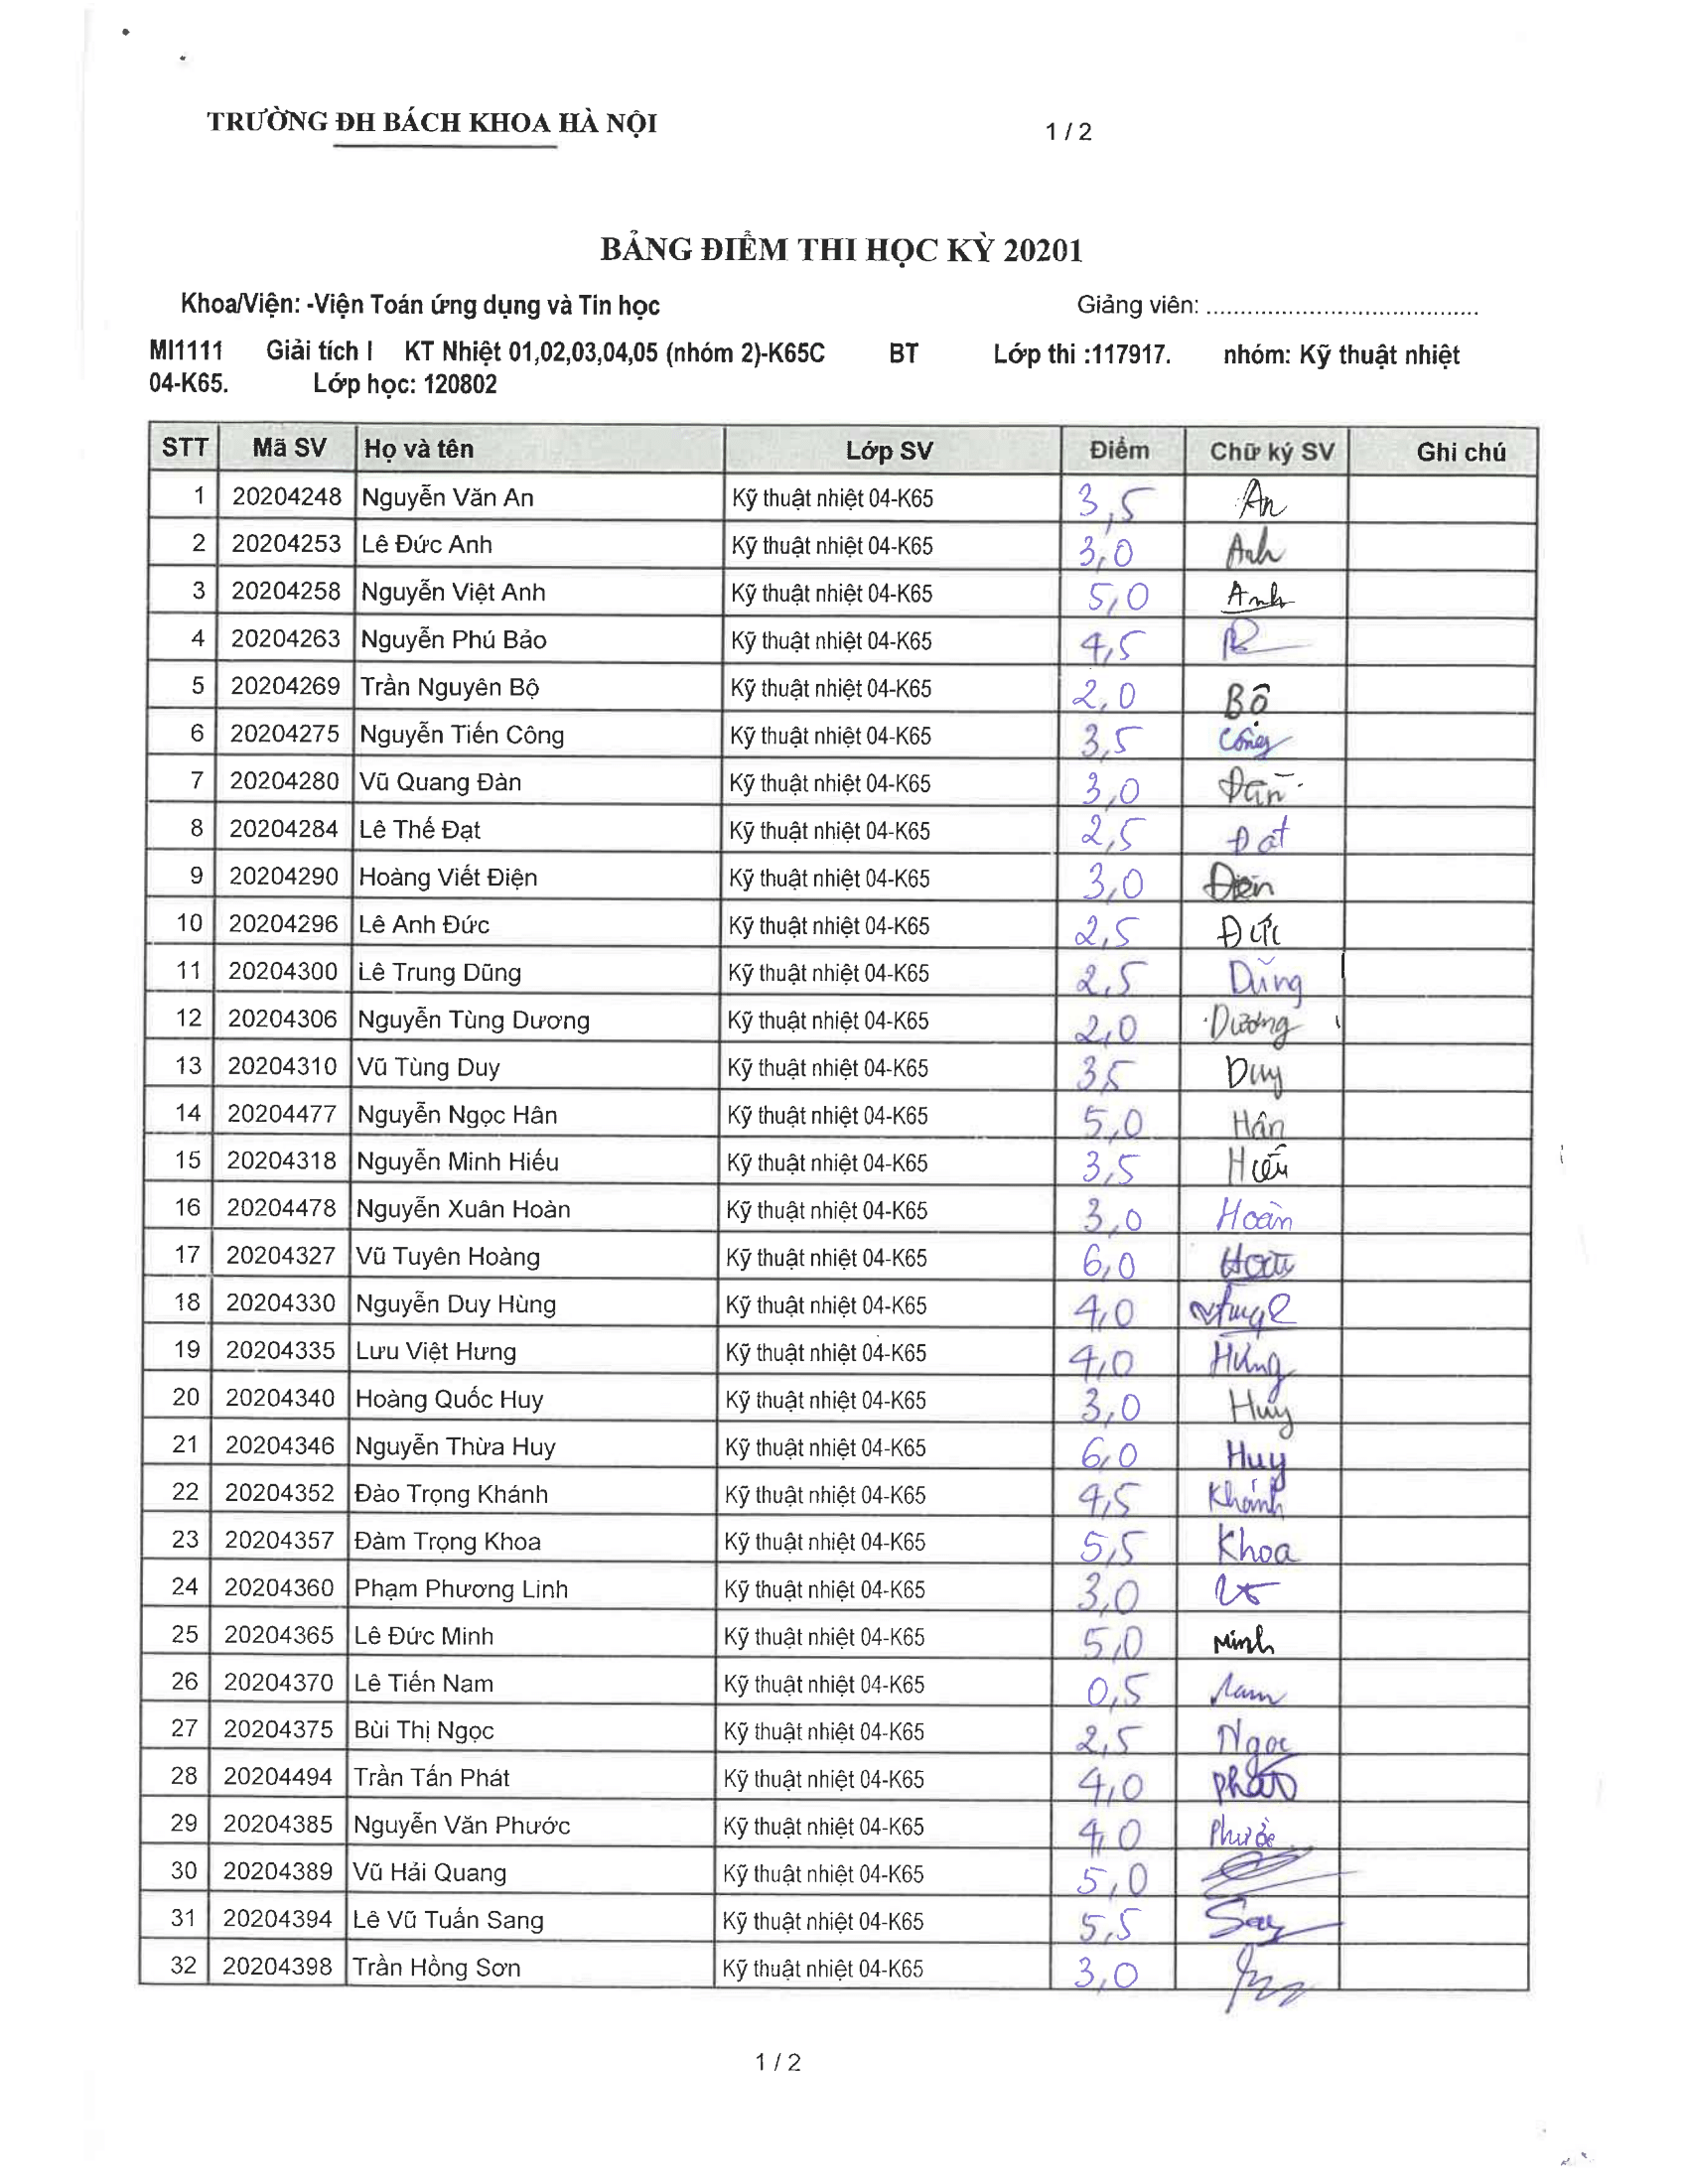 TRƯỜNG ĐH BÁCH KHOA HÀ NỘI 1 / 2
BẢNG ĐIỂM THI HỌC KỲ 20201
Khoa/Viện: -Viện Toán ứng dụng và Tin học Giảng viên: ........................................
MI1111 Giải tích I KT Nhiệt 01,02,03,04,05 (nhóm 2)-K65C BT Lớp thi :117917. nhóm: Kỹ thuật nhiệt
04-K65. Lớp học: 120802
STT Mã SV Họ và tên Lớp SV Điểm Chữ ký SV Ghi chú
1 20204248 Nguyễn Văn An Kỹ thuật nhiệt 04-K65 3,5 An
2 20204253 Lê Đức Anh Kỹ thuật nhiệt 04-K65 3,0 Anh
3 20204258 Nguyễn Việt Anh Kỹ thuật nhiệt 04-K65 5,0 Anh
4 20204263 Nguyễn Phú Bảo Kỹ thuật nhiệt 04-K65 4,5
5 20204269 Trần Nguyên Bộ Kỹ thuật nhiệt 04-K65 2,0 Bộ
6 20204275 Nguyễn Tiến Công Kỹ thuật nhiệt 04-K65 3,5 Công
7 20204280 Vũ Quang Đàn Kỹ thuật nhiệt 04-K65 3,0 Đàn
8 20204284 Lê Thế Đạt Kỹ thuật nhiệt 04-K65 2,5 Đạt
9 20204290 Hoàng Viết Điện Kỹ thuật nhiệt 04-K65 3,0 Điện
10 20204296 Lê Anh Đức Kỹ thuật nhiệt 04-K65 2,5 Đức
11 20204300 Lê Trung Dũng Kỹ thuật nhiệt 04-K65 2,5 Dũng
12 20204306 Nguyễn Tùng Dương Kỹ thuật nhiệt 04-K65 2,0 Dương
13 20204310 Vũ Tùng Duy Kỹ thuật nhiệt 04-K65 3,5 Duy
14 20204477 Nguyễn Ngọc Hân Kỹ thuật nhiệt 04-K65 5,0 Hân
15 20204318 Nguyễn Minh Hiếu Kỹ thuật nhiệt 04-K65 3,5 Hiếu
16 20204478 Nguyễn Xuân Hoàn Kỹ thuật nhiệt 04-K65 3,0 Hoàn
17 20204327 Vũ Tuyên Hoàng Kỹ thuật nhiệt 04-K65 6,0
18 20204330 Nguyễn Duy Hùng Kỹ thuật nhiệt 04-K65 4,0
19 20204335 Lưu Việt Hưng Kỹ thuật nhiệt 04-K65 4,0 Hưng
20 20204340 Hoàng Quốc Huy Kỹ thuật nhiệt 04-K65 3,0 Huy
21 20204346 Nguyễn Thừa Huy Kỹ thuật nhiệt 04-K65 6,0 Huy
22 20204352 Đào Trọng Khánh Kỹ thuật nhiệt 04-K65 4,5 Khánh
23 20204357 Đàm Trọng Khoa Kỹ thuật nhiệt 04-K65 5,5 Khoa
24 20204360 Phạm Phương Linh Kỹ thuật nhiệt 04-K65 3,0
25 20204365 Lê Đức Minh Kỹ thuật nhiệt 04-K65 5,0 Minh
26 20204370 Lê Tiến Nam Kỹ thuật nhiệt 04-K65 0,5 Nam
27 20204375 Bùi Thị Ngọc Kỹ thuật nhiệt 04-K65 2,5 Ngọc
28 20204494 Trần Tấn Phát Kỹ thuật nhiệt 04-K65 4,0 Phát
29 20204385 Nguyễn Văn Phước Kỹ thuật nhiệt 04-K65 4,0 Phước
30 20204389 Vũ Hải Quang Kỹ thuật nhiệt 04-K65 5,0
31 20204394 Lê Vũ Tuấn Sang Kỹ thuật nhiệt 04-K65 5,5 Sang
32 20204398 Trần Hồng Sơn Kỹ thuật nhiệt 04-K65 3,0
1 / 2